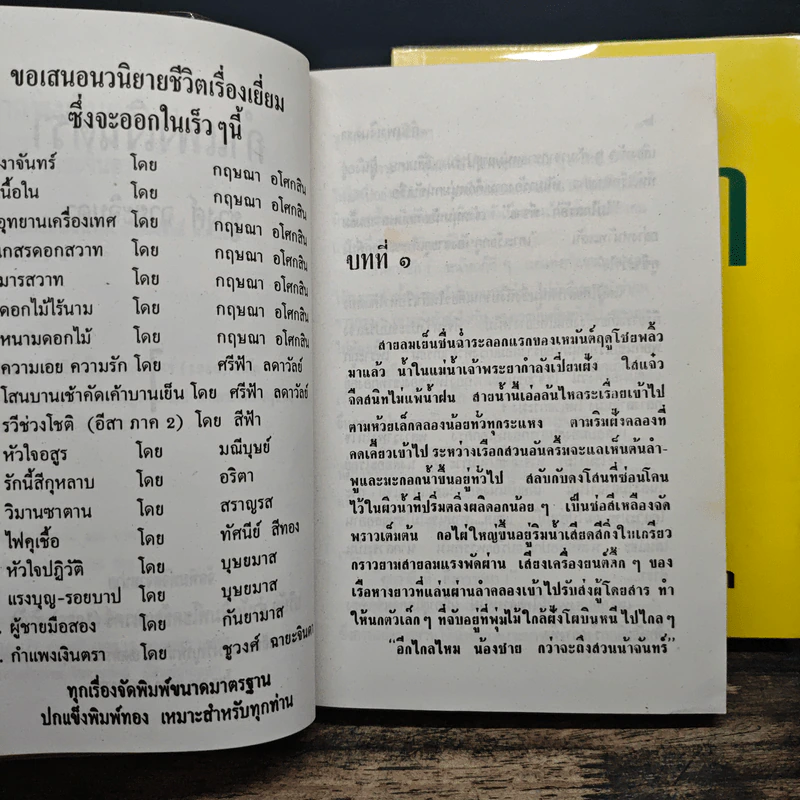 ขอเสนอนวนิยายชีวิตเรื่องเยี่ยม
ซึ่งจะออกในเร็วๆนี้
งาจันทร์ โดย กฤษณา อโศกสิน
นื้อใน โดย กฤษณา อโศกสิน
อุทยานเครื่องเทศ โดย กฤษณา อโศกสิน
เกสรดอกสวาท โดย กฤษณา อโศกสิน
มารสวาท โดย กฤษณา อโศกสิน
ดอกไม้ไร้นาม โดย กฤษณา อโศกสิน
หนามดอกไม้ โดย กฤษณา อโศกสิน
ความเอย ความรัก โดย ศรีฟ้า ลดาวัลย์
โสนบานเช้าคัดเค้าบานเย็น โดย ศรีฟ้า ลดาวัลย์
รวีช่วงโชติ (อีสา ภาค 2) โดย สีฟ้า
หัวใจอสูร โดย มณีบุษย์
รักนี้สีกุหลาบ โดย อริตา
วิมานซาตาน โดย สราญรส
ไฟคุเชื้อ โดย ทัศนีย์ สีทอง
หัวใจปฏิวัติ โดย บุษยมาส
แรงบุญ-รอยบาป โดย บุษยมาส
. ผู้ชายมือสอง โดย กันยามาส
. กำแพงเงินตรา โดย ชูวงศ์ ฉายะจินดา
ทุกเรื่องจัดพิมพ์ขนาดมาตรฐาน
ปกแข็งพิมพ์ทอง เหมาะสำหรับทุกท่าน
บทที่ ๑
สายลมเย็นชื่นฉ่ำระลอกแรกของเหมันต์ฤดูโชยพลิ้ว
มาแล้ว น้ำในแม่น้ำเจ้าพระยากำลังเปี่ยมฝั่ง ใสแจ๋ว
จืดสนิทไม่แพ้น้ำฝน สายน้ำนี้เอ่อล้นไหลระเรื่อยเข้าไป
ตามห้วยเล็กคลองน้อยทั่วทุกระแหง ตามริมฝั่งคลองที่
คดเคี้ยวเข้าไป ระหว่างเรือกสวนอันครึ้มจะแลเห็นต้นลำ-
พูและมะกอกน้ำขึ้นอยู่ทั่วไป สลับกับดงโสนที่ซ่อนโคน
ไว้ในผิวน้ำที่ปริ่มตลิ่งผลิดอกน้อยๆ เป็นช่อสีเหลืองจัด
พราวเต็มต้น กอไผ่ใหญ่ขึ้นอยู่ริมน้ำเสียดสีกิ่งใบเกรียว
กราวยามสายลมแรงพัดผ่าน เสียงเครื่องยนต์ลึกๆ ของ
เรือหางยาวที่แล่นผ่านลำคลองเข้าไปรับส่งผู้โดยสาร ทำ
ให้นกตัวเล็กๆ ที่จับอยู่ที่พุ่มไม้ใกล้ฝั่งโผบินหนีไปไกลๆ
“อีกไกลไหม น้องชาย กว่าจะถึงสวนน้าจันทร์”